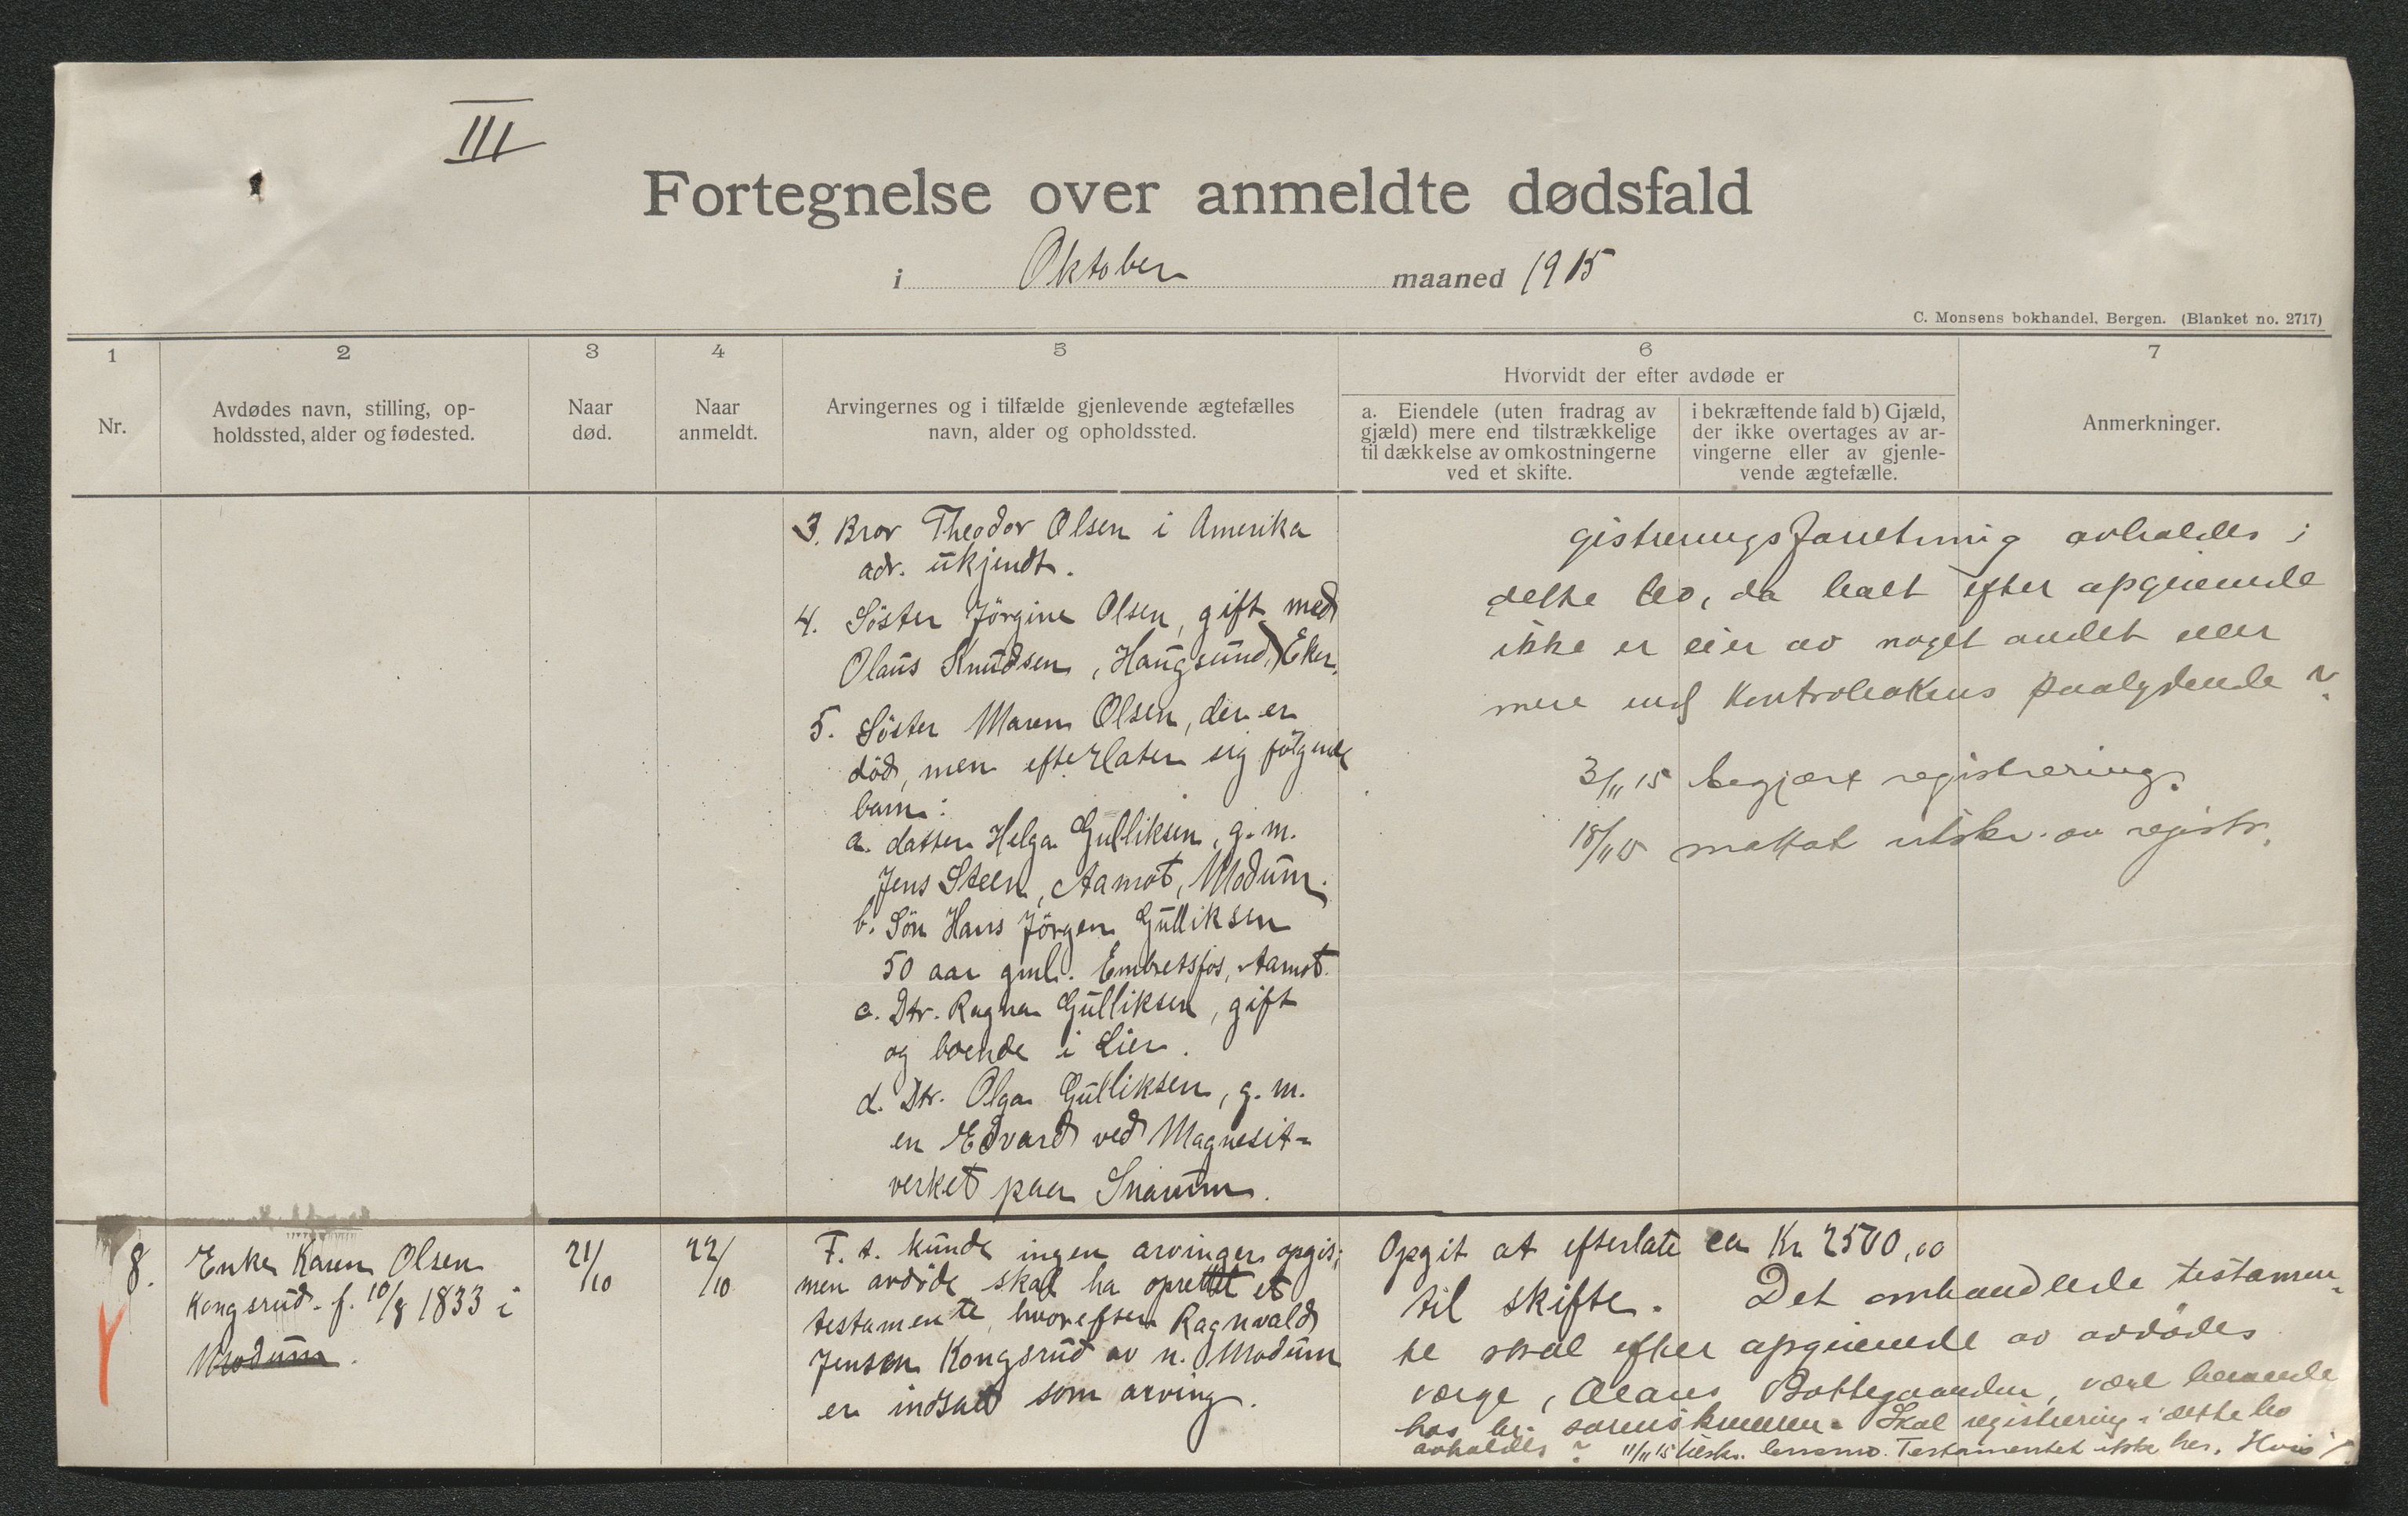 III
Fortegnelse over anmeldte dødsfald
i Oktober maaned 1915
C. Monsens bokhandel, Bergen. (Blanket no. 2717)
1
Nr.
2
Avdødes navn, stilling, op-
holdssted, alder og fødested.
3
Naar
død.
4
Naar
anmeldt.
5
Arvingernes og i tilfælde gjenlevende ægtefælles
navn, alder og opholdssted.
6
Hvorvidt der efter avdøde er
a. Eiendele (uten fradrag av
gjæld) mere end tilstrækkelige
til dækkelse av omkostningerne
ved et skifte.
i bekræftende fald b) Gjæld,
der ikke overtages av ar-
vingerne eller av gjenle-
vende ægtefælle.
7
Anmerkninger.
3. Bror Theodor Olsen i Amerika
adr. ukjendt.
4. Söster Jörgine Olsen, gift med
Olaus Knudsen, Haugsund, Eker.
5. Söster Maren Olsen, der er
död, men efterlater sig fölgende
barn:
a. datter Helga Gulliksen, g. m.
Jens Steen, Aamot, Modum.
b. Sön Hans Jörgen Gulliksen
50 aar gml. Embretsfos, Aamot.
c. Dtr. Ragna Gulliksen, gift
og boende i Lier.
d. Dtr. Olga Gulliksen, g. m.
en Edvard ved Magnesit-
verket paa Snarum.
gistreringsforretning avholdes i
dette bo, da boet efter opgivende
ikke er eier av noget andet eller
mere end Kontrabokens paalydende?
3/11 15 begjært registrering.
18/11 15 mottat utskr. av registr.
8.
Enke Karen Olsen
Kongsrud. f. 10/8 1833 i
Modum.
21/10
22/10
F. t. kunde ingen arvinger opgis;
men avdöde skal ha oprettet et
testamente, hvorefter Ragnvald
Jensen Kongsrud av n. Modum
er indsat som arving.
Opgit at efterlate ca Kr 2500,00
til skifte. Det omhandlede testamen-
te skal efter opgivende av avdödes
værge, Olaus Bottegaarden, være beroende
hos hr. sorenskriveren. Skal registrering i dette bo
avholdes? 11/11 15 tilskr. lensmd. Testamentet ikke her. Hvis